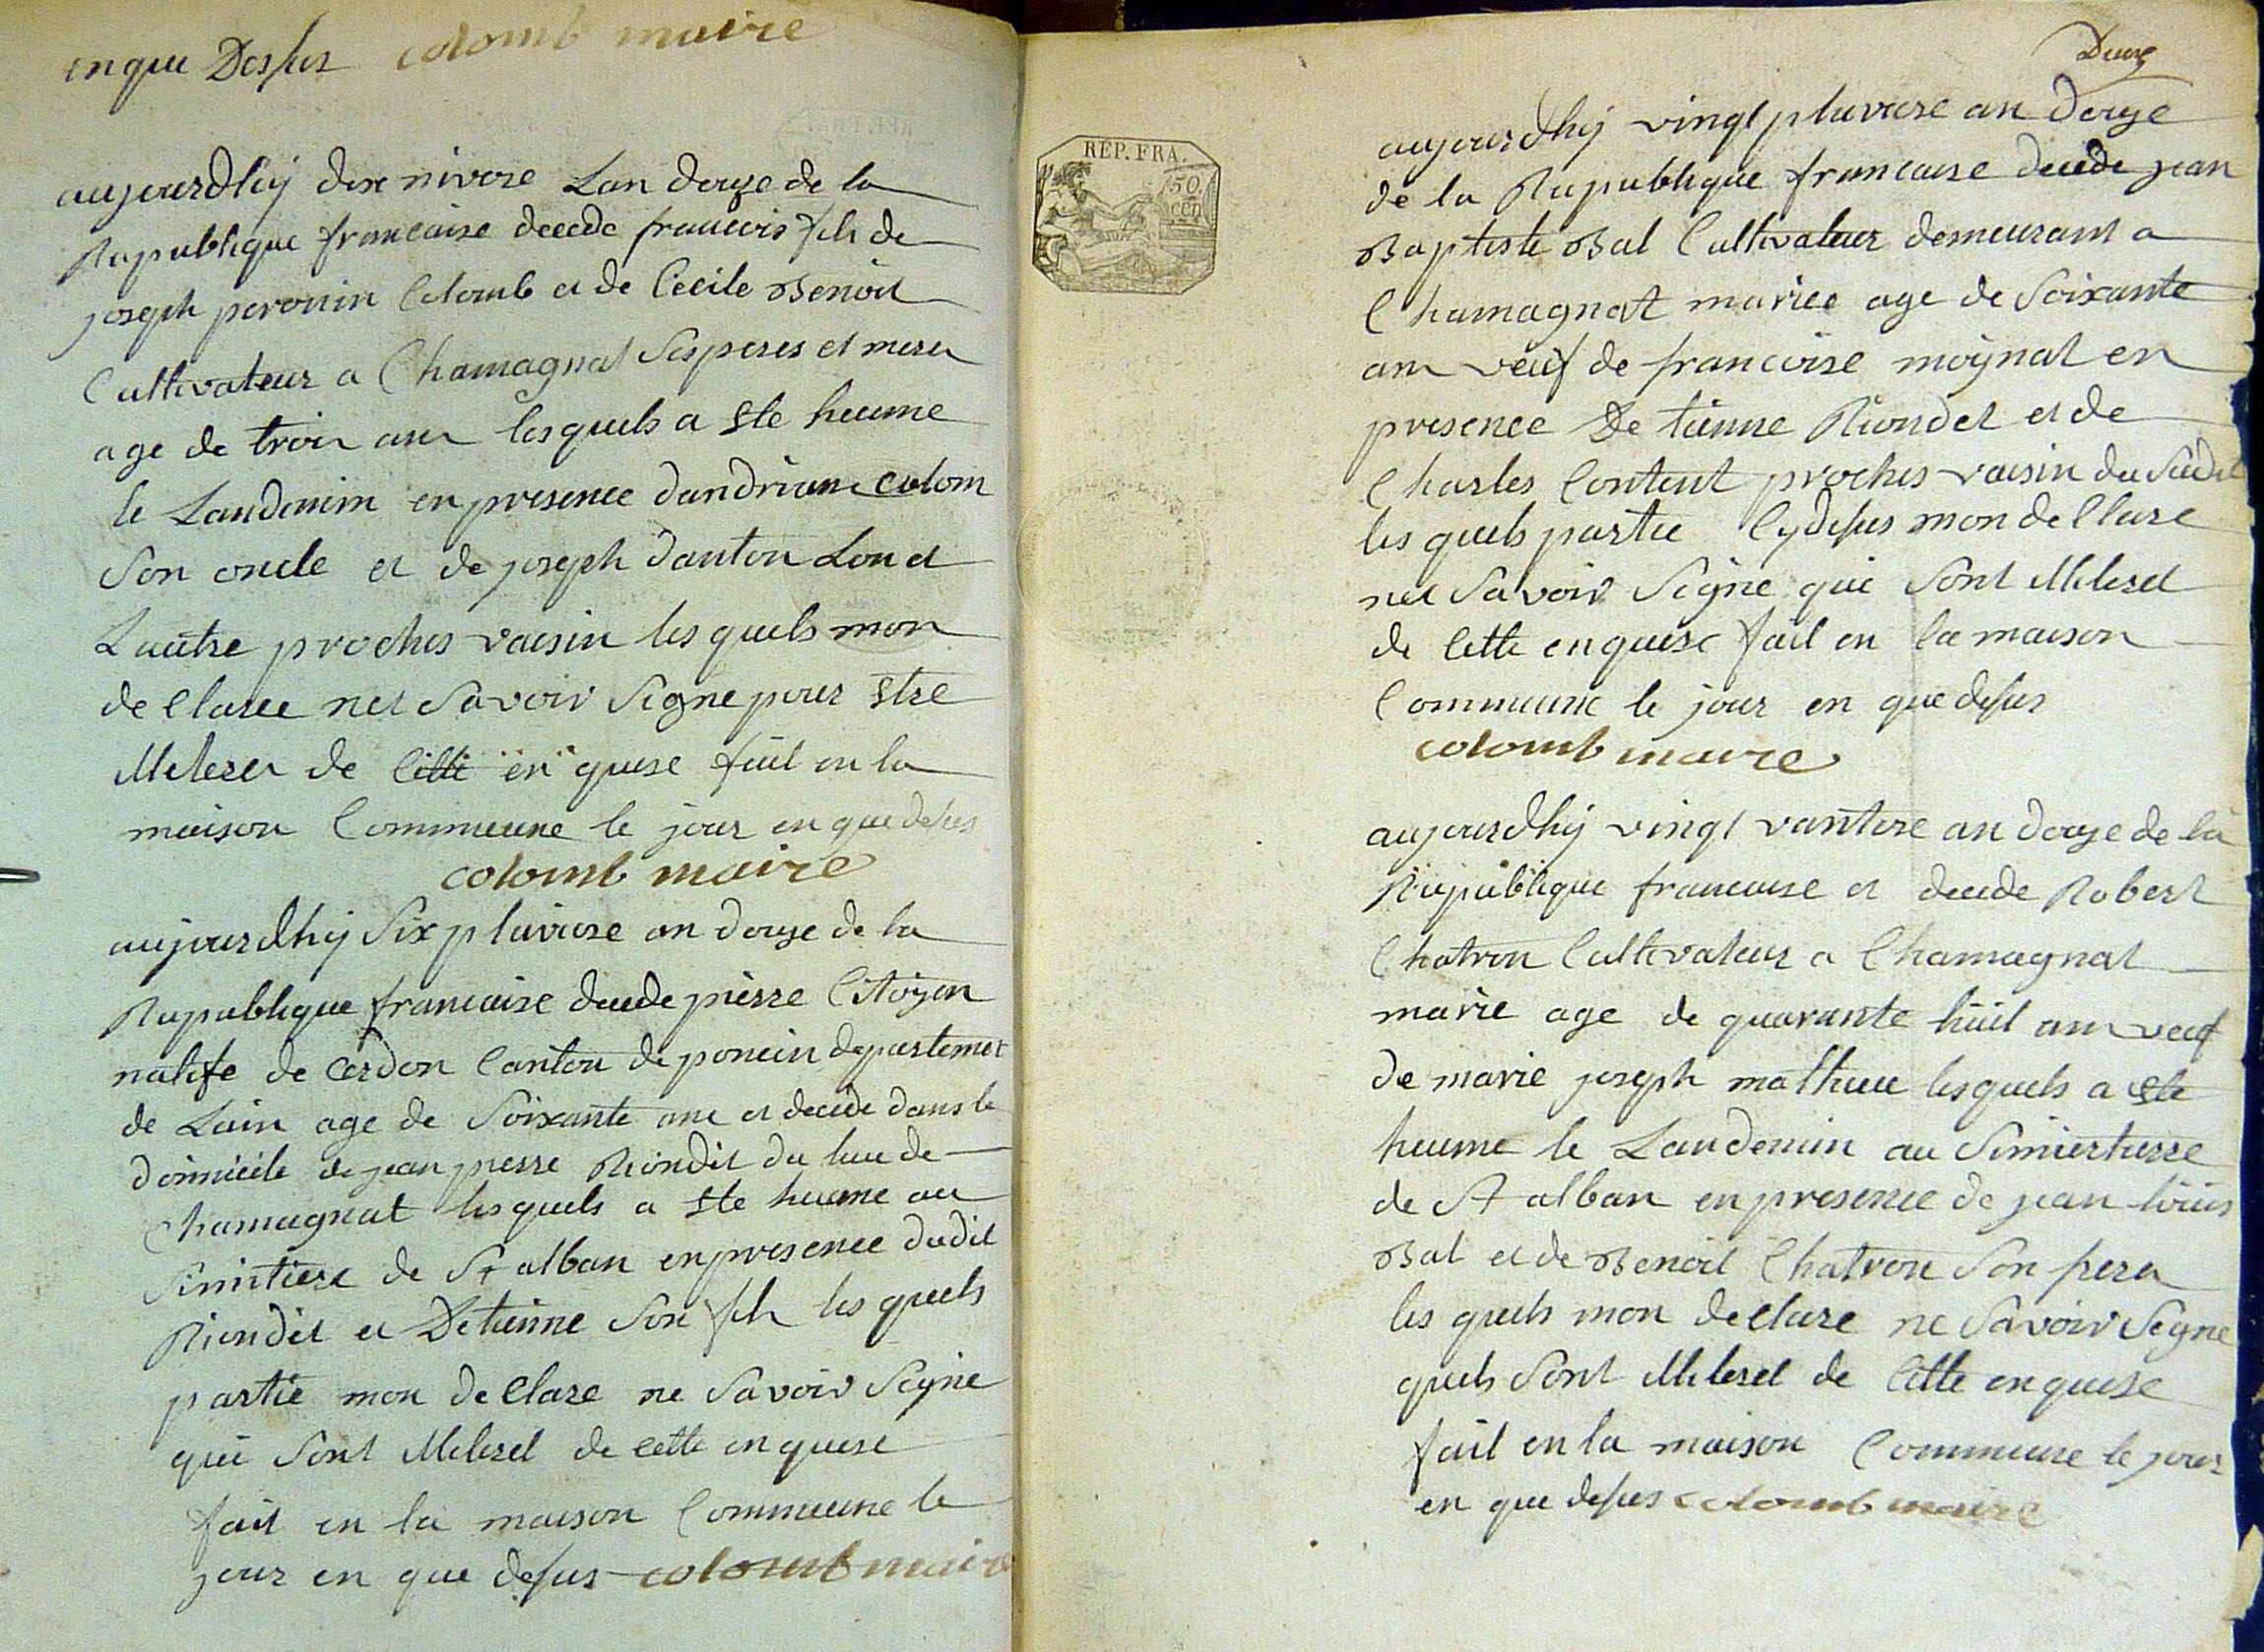 en que Desus colomb maire
aujourdhij dixe nivose Lan douze de la
Rupublique francaise decede francois fils de
joseph peronin Colomb et de Cecile Benoit
Cultivateur a Chamagnat Ses peres et meres
age de trois ans les quels a Ste heume
le Landemin en presence dandrian colom
Son oncle et de joseph danton Lon et
Lautre proches vaisin les quels mon
de Claree net Savoir Signe pour Stre
Melesez de Citte en quese fait en la
maison Commeune le jour en que desus
colomb maire
aujourdhij Six pluviose an douze de la
Rupublique francaise decede pierre Citoyen
natife de cerdon Canton de poncin departemet
de Lain age de Soixante ane et decide dans le
domicile de jean pierre Riondet du lieu de
Chamagnat les quels a Ste heume au
Simitiere de St alban en presence dudit
Riondet et Detienne Son fils les quels
partie mon de Clare ne Savoir Signe
qui Sont Melezel de cette en quese
fait en la maison Commeune le
jour en que desus colomb maire
Deuxe
REP. FRA.
50 cen
aujourdhij vingt pluviose an douze
de la Rupublique francaise decede jean
Baptiste Bal Cultivateur demeurant a
Chamagnat mariee age de Soixante
ans veuf de francoise moynat en
presence De tienne Riondet et de
Charles Content proches vaisin du Sudit
les quels partie Cydesus mon de Clare
net Savoir Signe qui Sont Melesel
de Cette en quese fait en la maison
Commeune le jour en que desus
colomb maire
aujourdhij vingt vantose an douze de la
Rupublique francaise et decede Robert
Chatron Cultivateur a Chamagnat
marie age de quarante huit ans veuf
de marie joseph mathieu les quels a Ste
heume le Landemin au Simiertierre
de St alban en presence de jean louis
Bal et de Benoit Chatron Son frere
les quels mon de clare ne Savoir Segne
quels Sont Melesel de Cette en quese
fait en la maison Commeune le jour
en que desus colomb maire